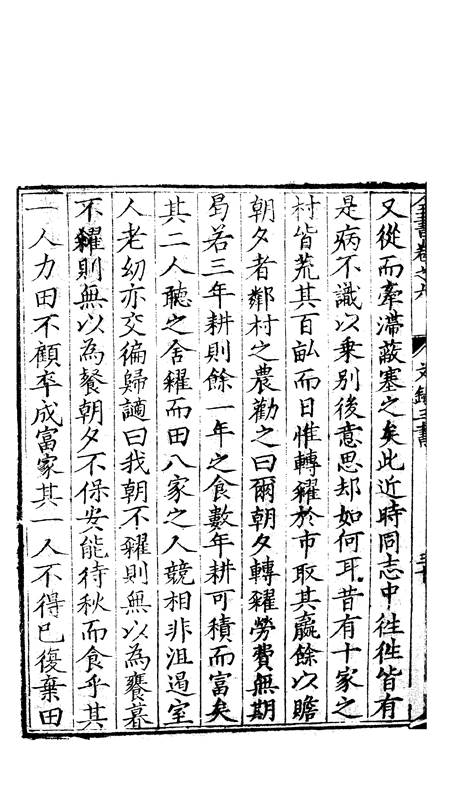 全書卷之六 文錄三書
又從而牽滯蔽塞之矣此近時同志中徃徃皆有
是病不識以乗別後意思却如何耳昔有十家之
村皆荒其百畝而日惟轉糴於市取其嬴餘以贍
朝夕者鄰村之農勸之曰爾朝夕轉糴勞費無期
曷若三年耕則餘一年之食數年耕可積而富矣
其二人聽之舍糴而田八家之人競相非沮遏室
人老幼亦交徧歸謫曰我朝不糴則無以為饔暮
不糴則無以為餐朝夕不保安能待秋而食乎其
一人力田不顧卒成富家其一人不得已復棄田